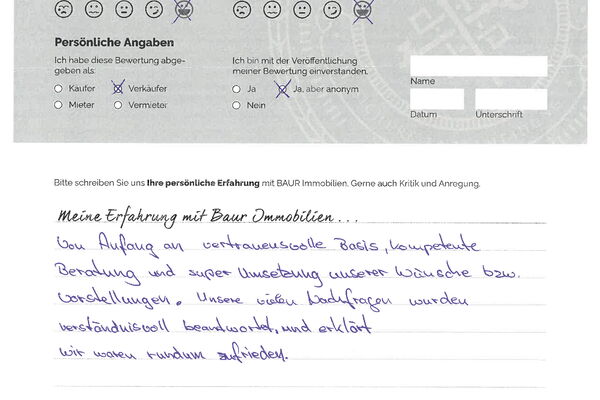 Persönliche Angaben
Ich habe diese Bewertung abge-
geben als:
Käufer
Verkäufer
Mieter
Vermieter
Ich bin mit der Veröffentlichung
meiner Bewertung einverstanden.
Ja
Ja, aber anonym
Nein
Name
Datum
Unterschrift
Bitte schreiben Sie uns Ihre persönliche Erfahrung mit BAUR Immobilien. Gerne auch Kritik und Anregung.
Meine Erfahrung mit Baur Immobilien...
Von Anfang an vertrauensvolle Basis, kompetente
Beratung und super Umsetzung unserer Wünsche bzw.
Vorstellungen. Unsere vielen Nachfragen wurden
verständnisvoll beantwortet, und erklärt
wir waren rundum zufrieden.